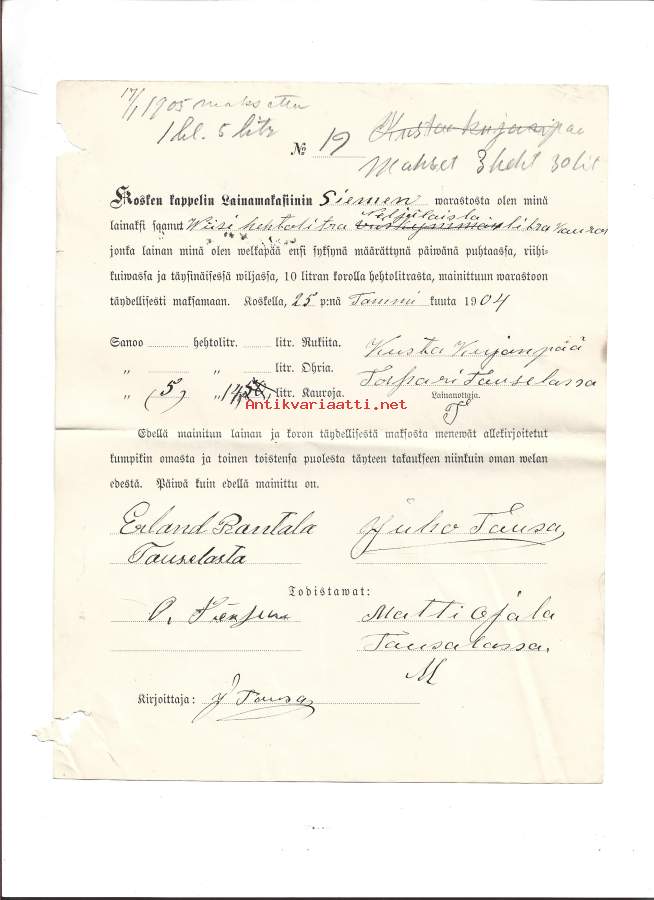 17/1 1905 maksettu
1 hl. 5 litr
№ 19 Kusta Kujanpää
Maksct 3 heht 30 lit
Kosken kappelin Lainamakasiinin Siemen warastosta olen minä
lainaksi saanut Wiisi hehtolitra Neljälaista litra Kauroi
jonka lainan minä olen welkapää ensi syksynä määrättynä päiwänä puhtaassa, riihi-
kuiwassa ja täysinäisessä wiljassa, 10 litran korolla hehtolitrasta, mainittuun warastoon
täydellisesti maksamaan. Koskella, 25 p:nä Tammi kuuta 1904
Sanoo hehtolitr. litr. Rukiita.
„ „ litr. Ohria.
„ (5) „ 14 50 litr. Kauroja.
Kusta Kujanpää
Taspari Tauselassa
Lainanottaja.
Antikvariaatti.net
Edellä mainitun lainan ja koron täydellisestä maksosta menewät allekirjoitetut
kumpikin omasta ja toinen toistensa puolesta täyteen takaukseen niinkuin oman welan
edestä. Päiwä kuin edellä mainittu on.
Erland Rantala Juho Tausa
Tauselasta
Todistawat:
O. Matti Ojala
Tausalassa.
M
Kirjoittaja: J Tausa